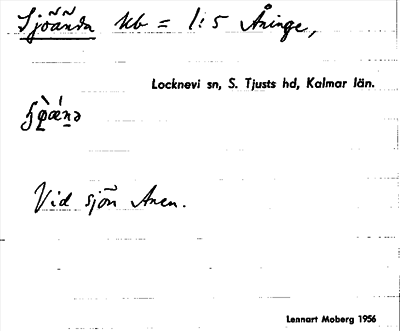 Sjöända kb = 1:5 Åninge,
Locknevi sn, S. Tjusts hd, Kalmar län.
Vid sjön Anen.
Lennart Moberg 1956